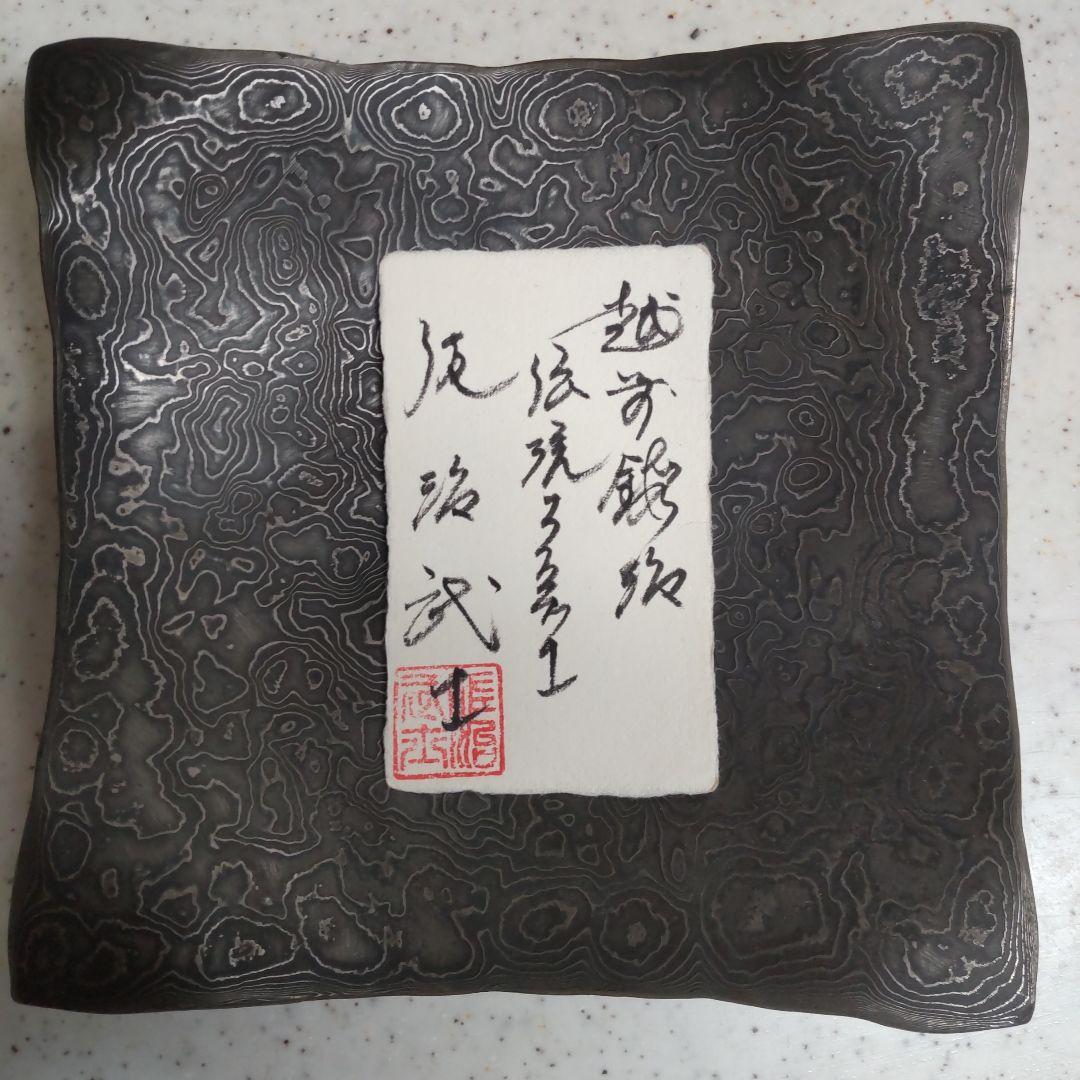 越前鍛冶
伝統工芸士
佐治武士
佐治
武士